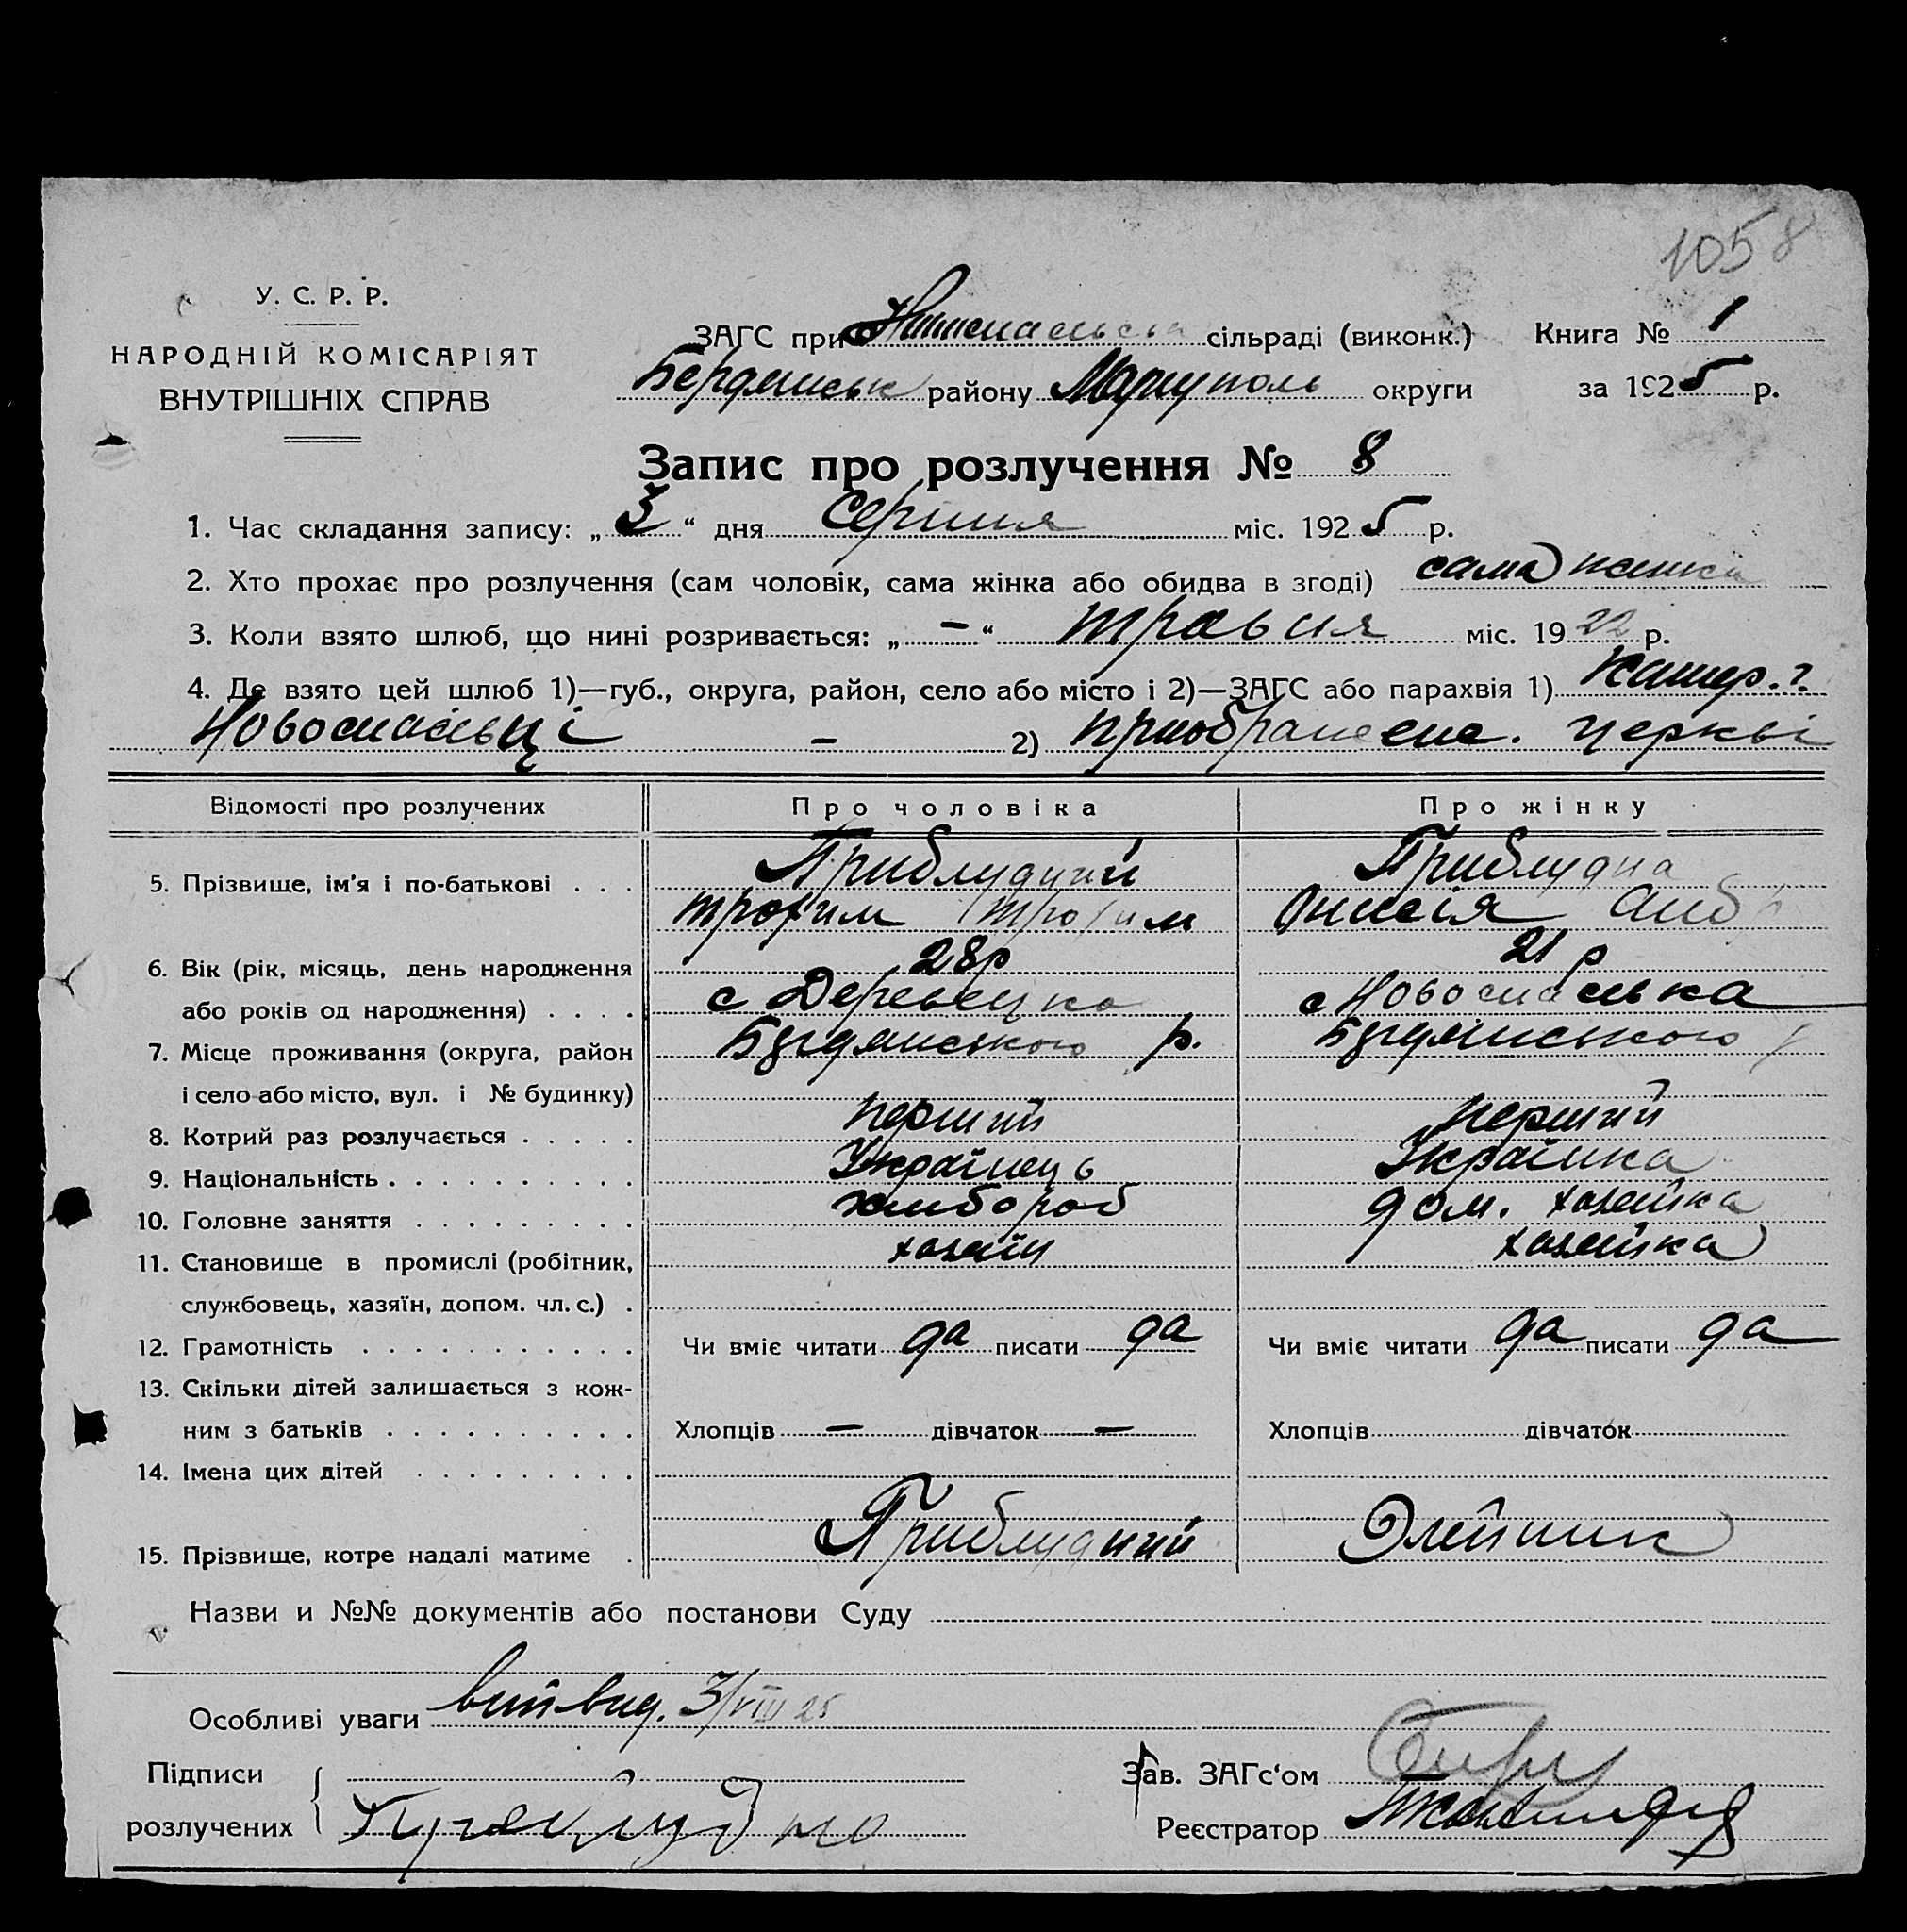 1058
У. С. Р. Р.
НАРОДНІЙ КОМІСАРІЯТ
ВНУТРІШНІХ СПРАВ
ЗАГС при сільраді (виконк.) Книга № 1
Бердянськ району Маріуполь округи за 1925 р.
Запис про розлучення № 8
1. Час складання запису: „3“ дня серпня міс. 1925 р.
2. Хто прохає про розлучення (сам чоловік, сама жінка або обидва в згоді) сама
3. Коли взято шлюб, що нині розривається: „—“ травня міс. 1922 р.
4. Де взято цей шлюб 1)—губ., округа, район, село або місто і 2)—ЗАГС або парахвія 1) Катер. г.
Новоспасівці — 2) церкві
Відомості про розлучених Про чоловіка Про жінку
5. Прізвище, ім'я і по-батькові . . . Приблудний Приблудна
Трохим Трохим Онисія
6. Вік (рік, місяць, день народження 28р 21 р
або років од народження) . . . . с с Новоспасівка
7. Місце проживання (округа, район Бердянського р. Бердянського р
і село або місто, вул. і № будинку)
8. Котрий раз розлучається . . . . . перший перший
9. Національність . . . . . . . . . . Українець Українка
10. Головне заняття . . . . . . . . . хлибороб дом. хозяйка
11. Становище в промислі (робітник, хозяїн хозяйка
службовець, хазяїн, допом. чл. с.) .
12. Грамотність . . . . . . . . . . . Чи вміє читати да писати да Чи вміє читати да писати да
13. Скільки дітей залишається з кож-
ним з батьків . . . . . . . . . . Хлопців — дівчаток — Хлопців дівчаток
14. Імена цих дітей . . . . . . . . .
15. Прізвище, котре надалі матиме . Приблудний Олейник
Назви и №№ документів або постанови Суду
Особливі уваги 3/VIII 25
Підписи Зав. ЗАГс‘ом
розлучених Реєстратор